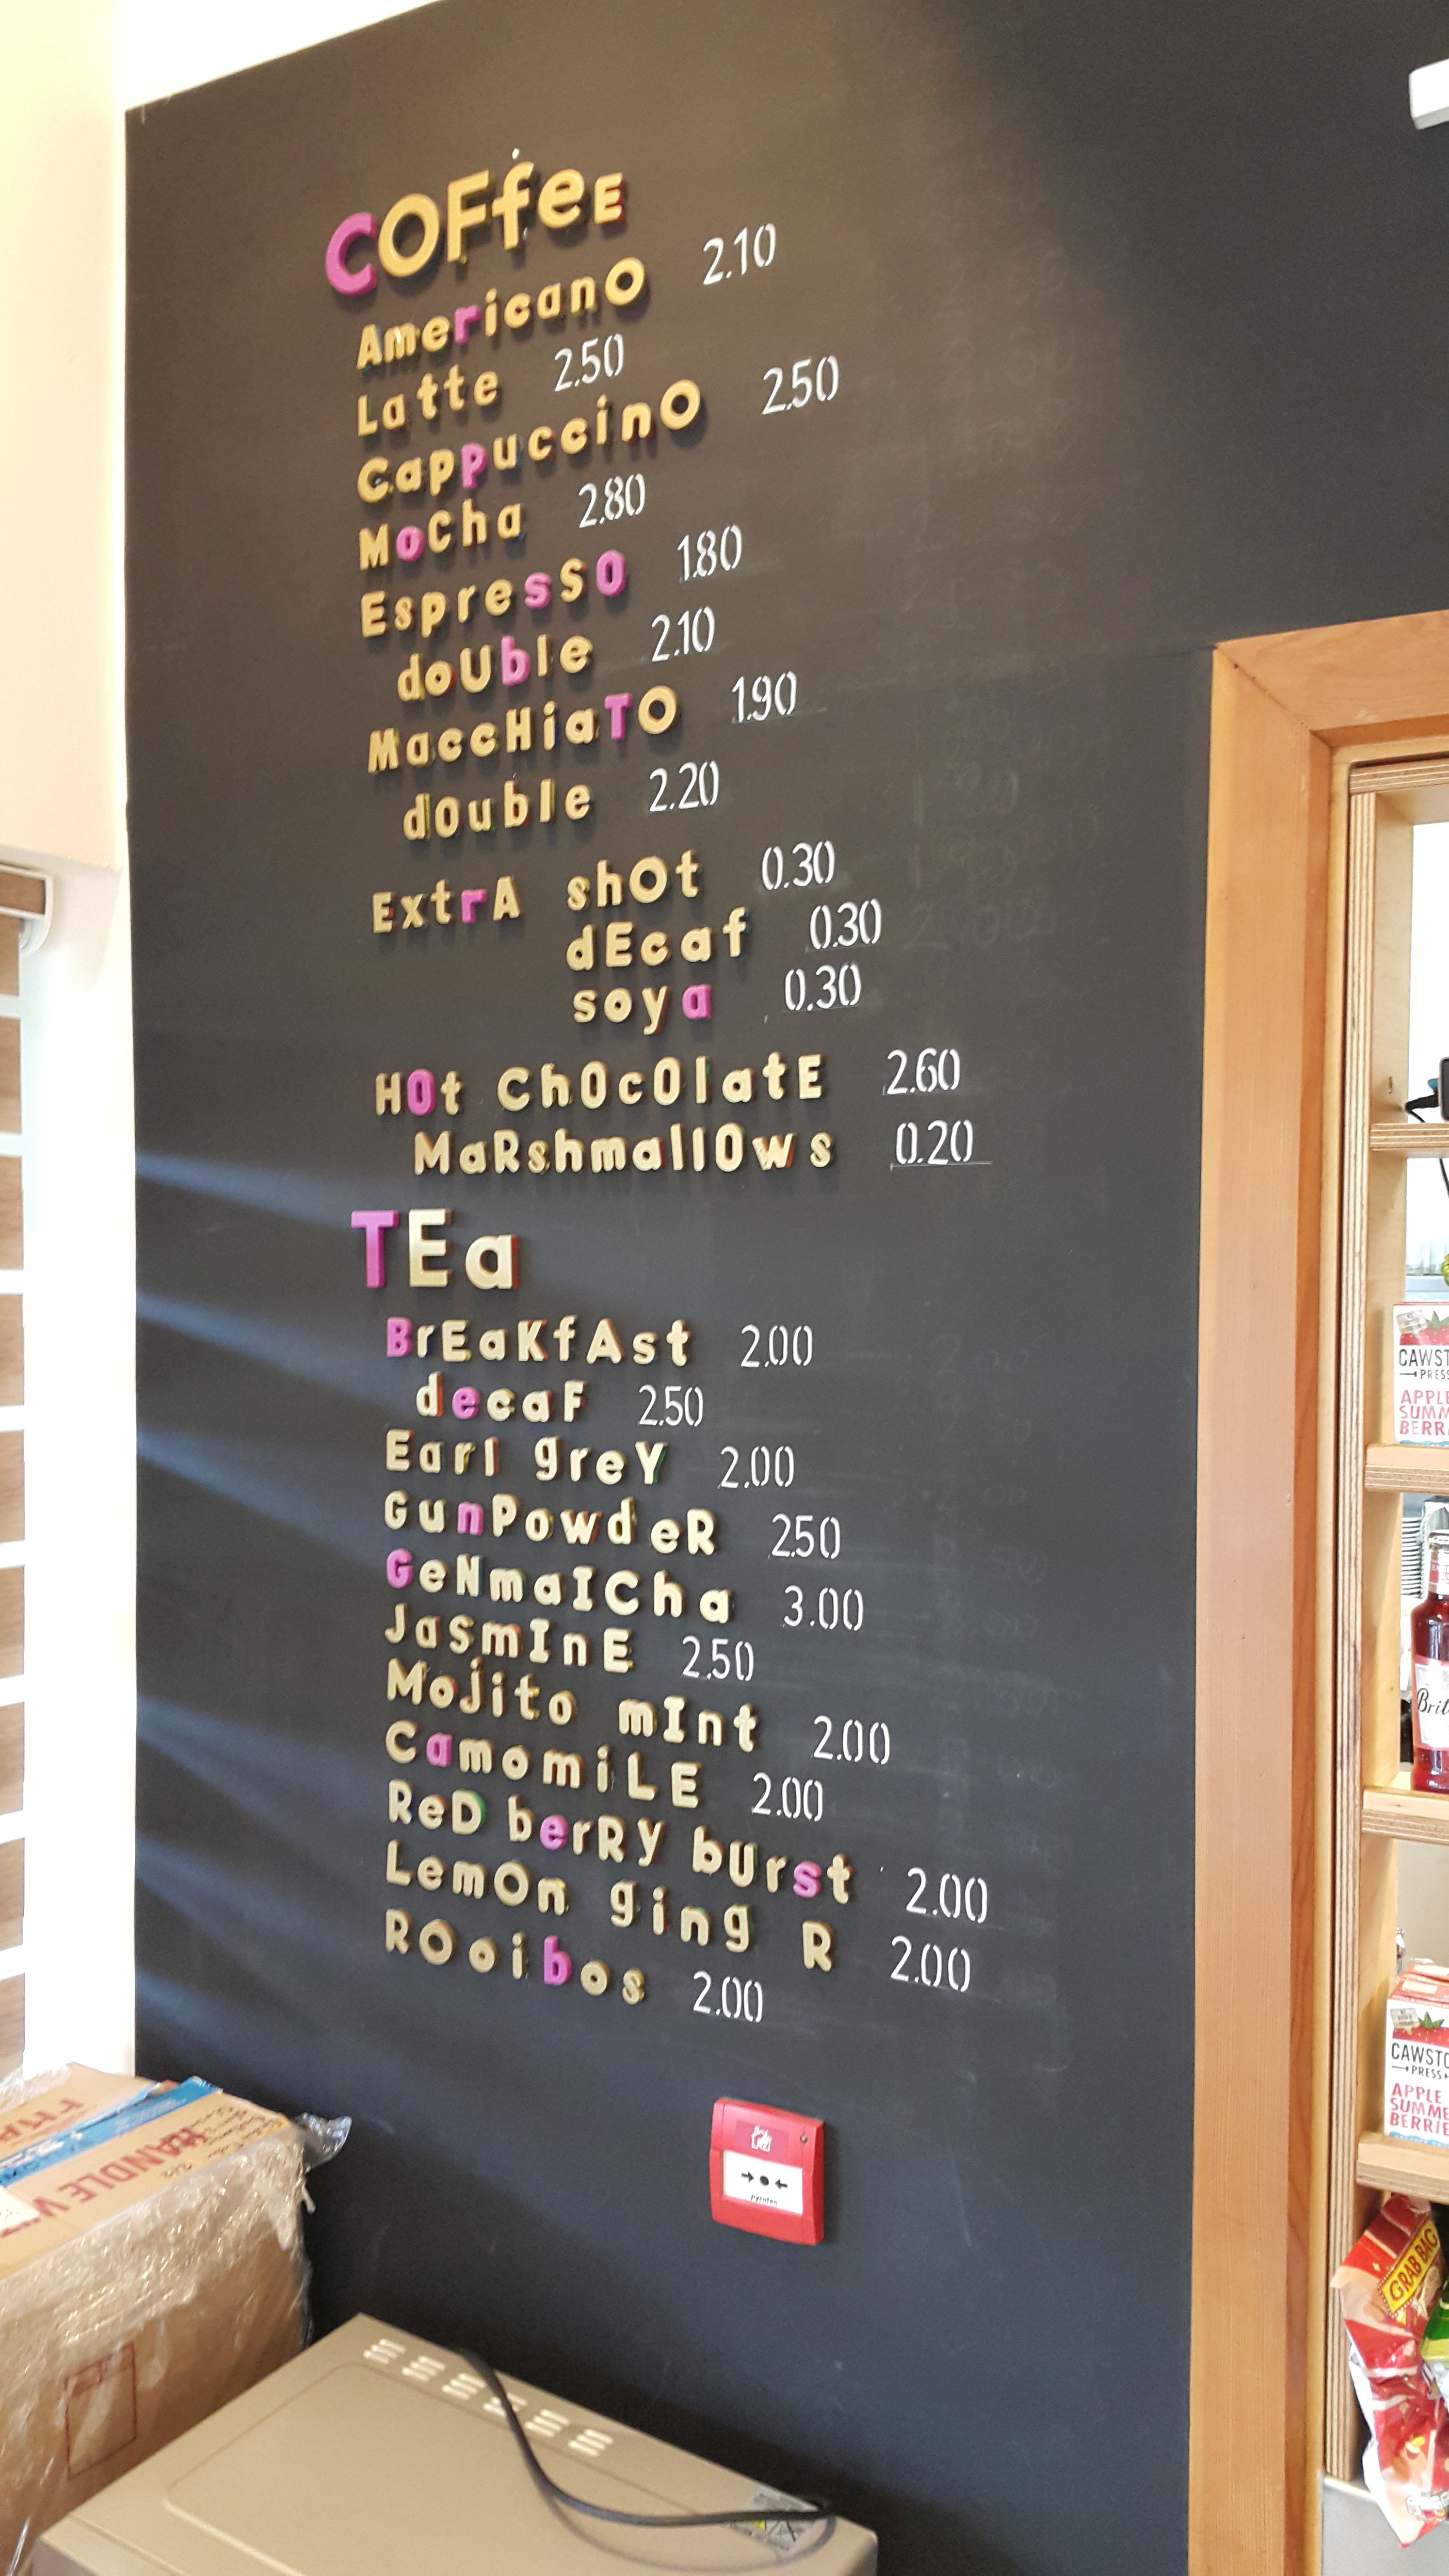 COFfeE
AmericanO 2.10
Latte 2.50
CappuccinO 2.50
MoCha 2.80
EspresSO 1.80
doUble 2.10
MaccHiaTO 1.90
dOuble 2.20
ExtrA shOt 0.30
dEcaf 0.30
soya 0.30
HOt ChOcOlatE 2.60
MaRshmallOws 0.20
TEa
BrEaKfAst 2.00
decaF 2.50
Earl greY 2.00
GunPowdeR 2.50
GeNmaICha 3.00
JaSmInE 2.50
MoJito mInt 2.00
CamomiLE 2.00
ReD berRy bUrst 2.00
LemOn ging R 2.00
ROoibos 2.00
CAWST
PRESS
APPLE
SUMM
BERR
Brit
CAWSTO
PRESS
APPLE
SUMME
BERRIE
GRAB BAG
HANDLE